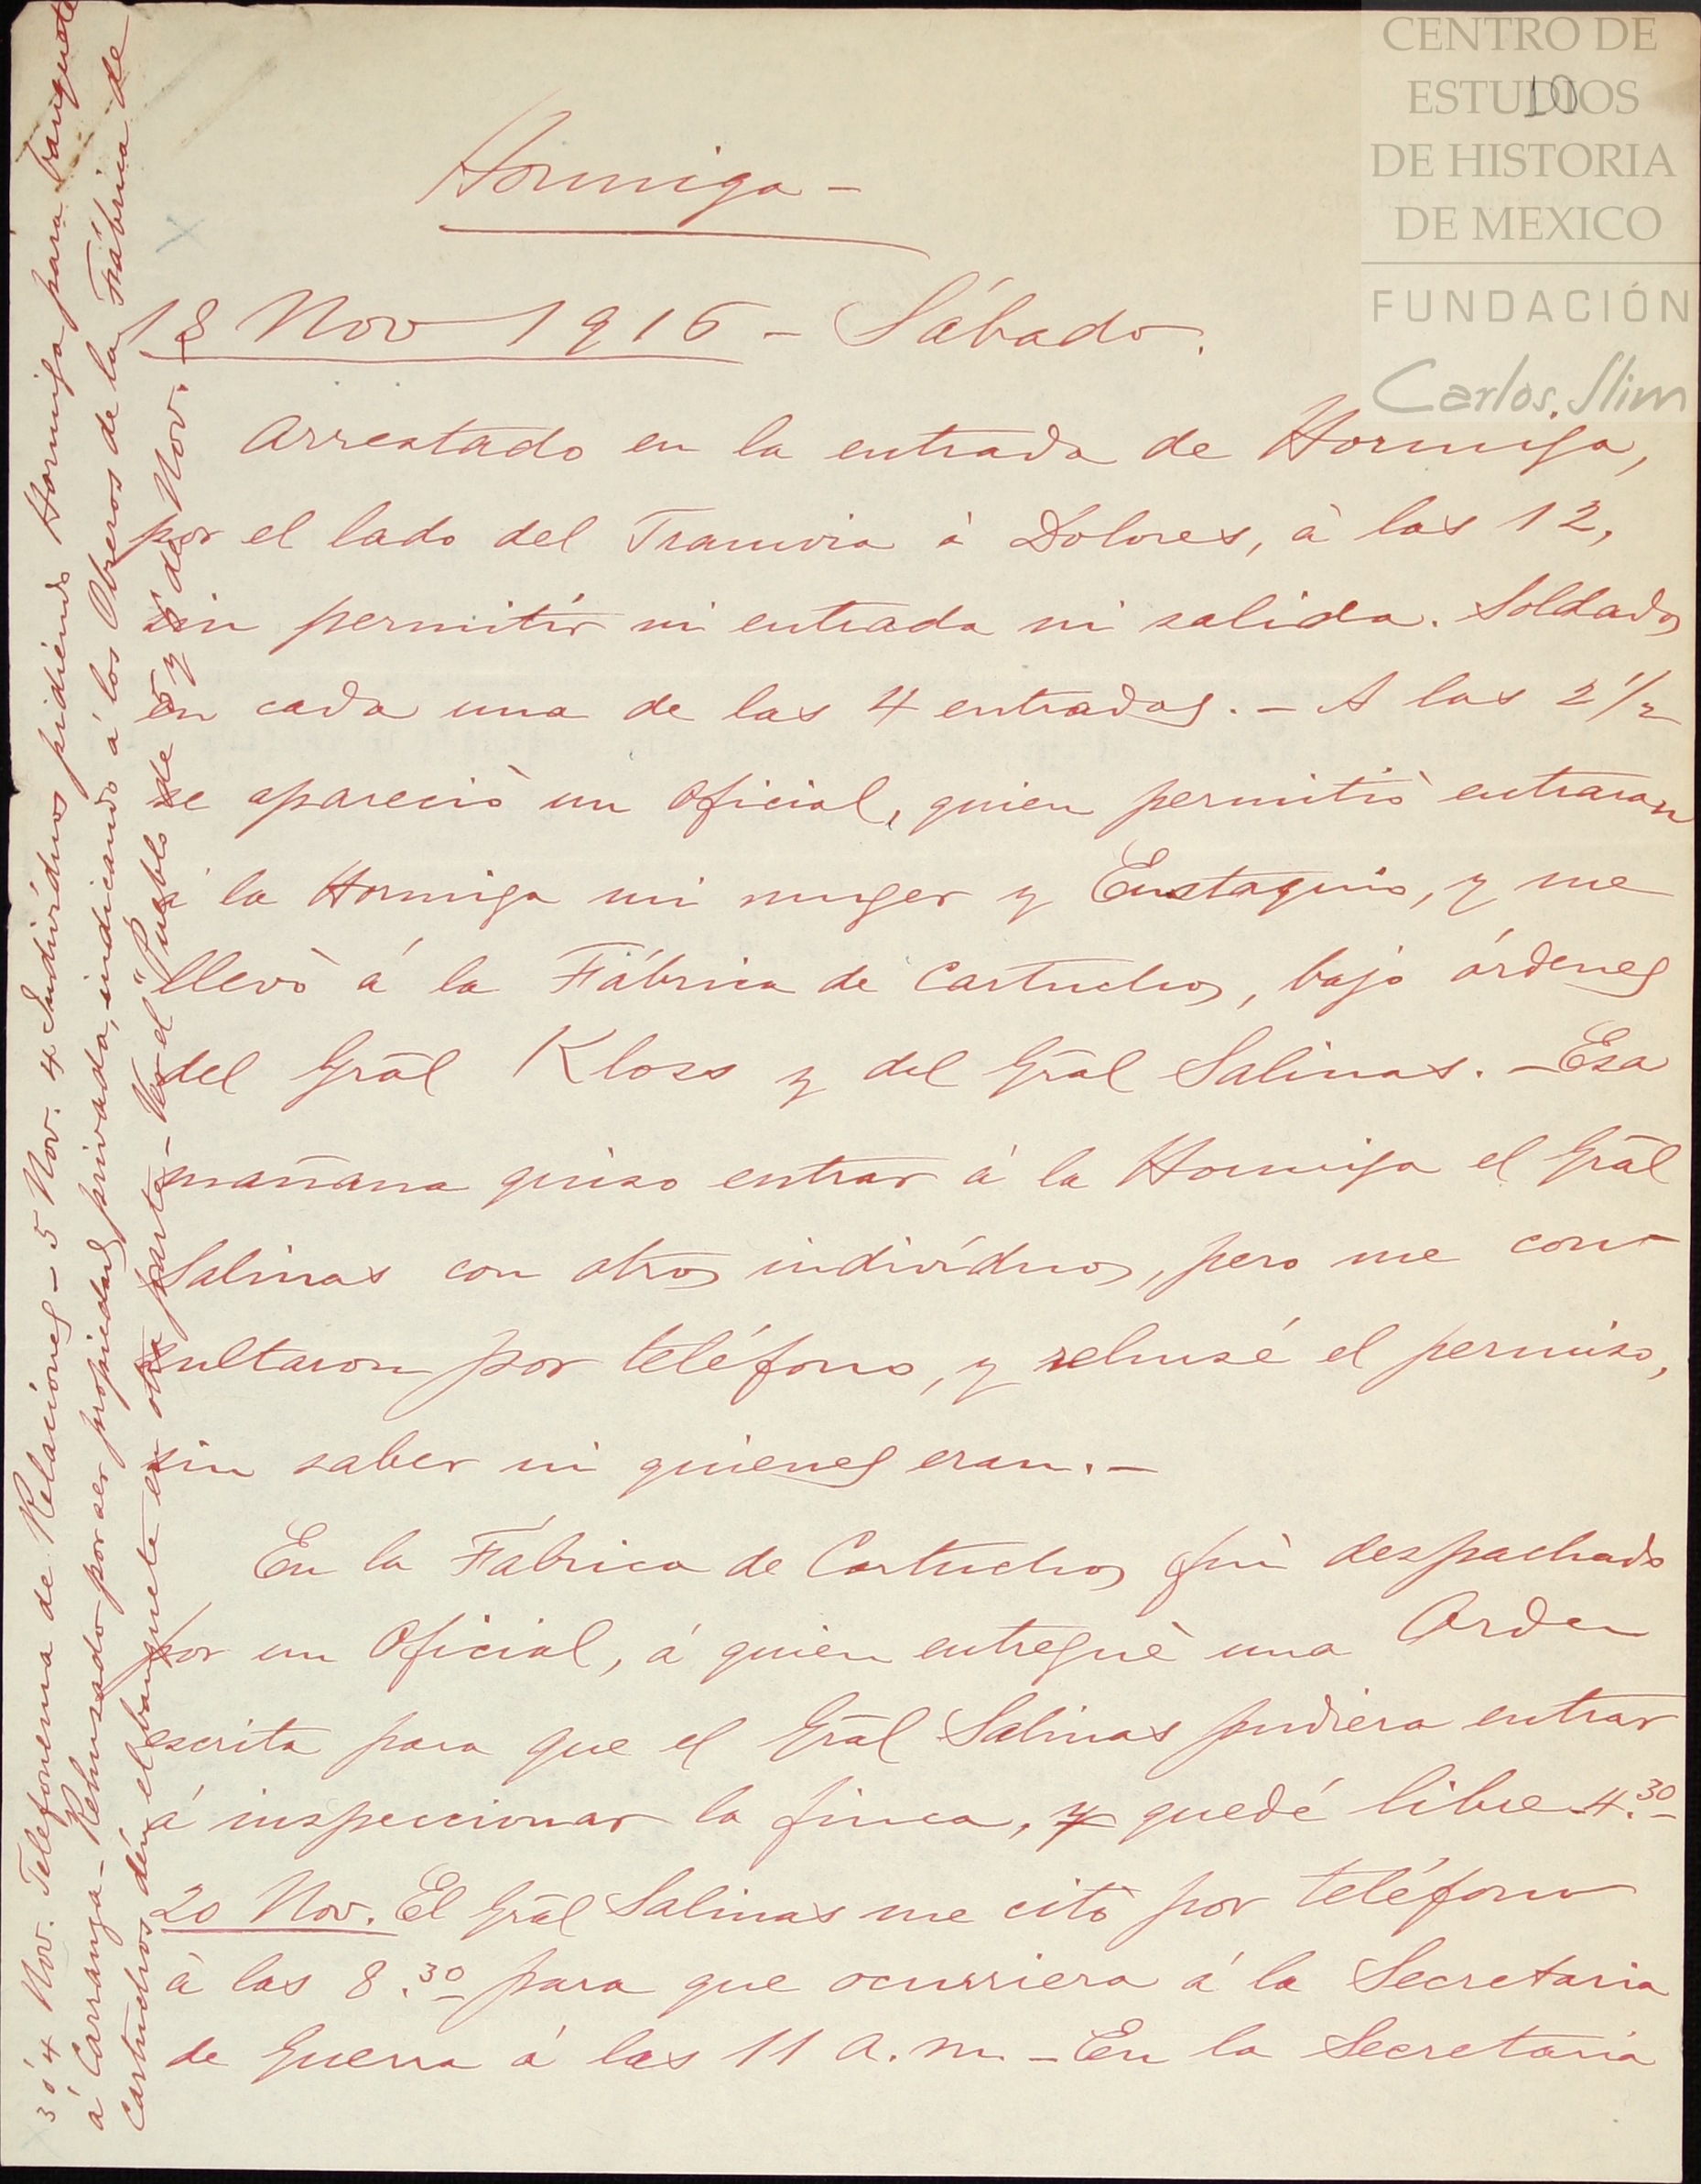 CENTRO DE
ESTUDIOS
DE HISTORIA
DE MEXICO
FUNDACIÓN
Carlos Slim
10
Hormiga -
18 Nov 1916 - Sábado.
Arrestado en la entrada de Hormiga,
por el lado del Tranvia à Dolores, à las 12,
sin permitir ni entrada ni salida. Soldados
en cada una de las 4 entradas. - A las 2 1/2
se apareciò un Oficial, quien permitiò entraran
á la Hormiga mi muger y Eustaquio, y me
llevò á la Fábrica de Cartuchos, bajo órdenes
del Grãl Kloss y del Grãl Salinas. - Esa
mañana quiso entrar á la Hormiga el Grãl
Salinas con otros indivíduos, pero me con-
sultaron por teléfono, y rehusé el permiso,
sin saber ni quienes eran. -
En la Fábrica de Cartuchos fuì despachado
por un Oficial, á quien entreguè una Orden
escrita para que el Grãl Salinas pudiera entrar
á inspeccionar la finca, y quedé libre 4.30
20 Nov. El Grãl Salinas me citò por teléfono
á las 8.30 para que ocurriera á la Secretaria
de Guerra á las 11 a.m. - En la Secretaria
3 ó 4 Nov. Telefonema de Relaciones - 5 Nov. 4 Indivíduos pidiendo Hormiga para banquete
á Carranza - Rehusado por ser propiedad privada, indicando á los Obreros de la Fábrica de
Cartuchos dén el banquete en otra parte - Ver el "Pueblo" de 5 y 6 de Nov. -